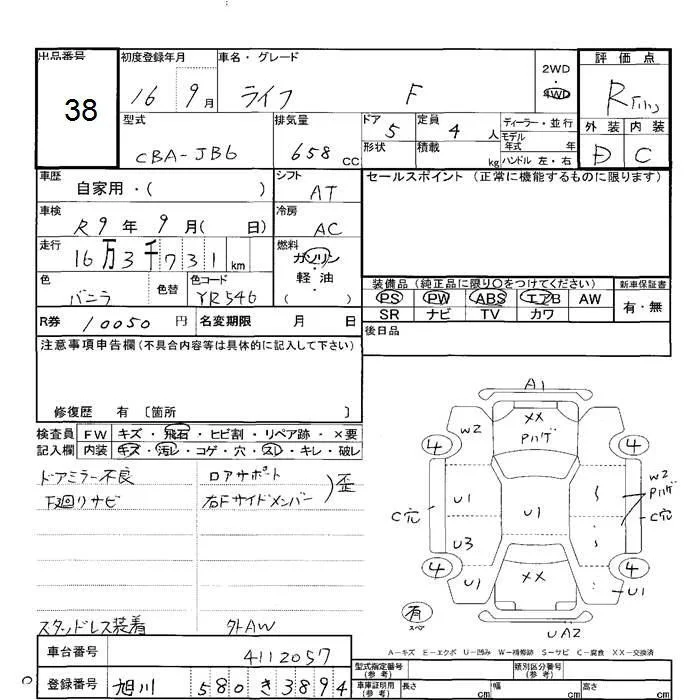 出品番号 初度登録年月 車名・グレード 2WD 評価点
38 16 9月 ライフ F 4WD R
型式 排気量 ドア 5 定員 4人 ディーラー・並行 外装 内装
CBA-JB6 658 CC 形状 積載 kg モデル年式 年 ハンドル 左・右 D C
車歴 自家用・( ) シフト AT セールスポイント (正常に機能するものに限ります)
車検 R9年9月( 日) 冷房 AC
走行 16万3千731 km 燃料 ガソリン
軽油
色 バニラ 色替 色コード YR546 ( ・ )
装備品(純正品に限り○をつけてください) 新車保証書
PS PW ABS エアB AW 有・無
SR ナビ TV カワ
R券 10050円 名変期限 月 日 後日品
注意事項申告欄(不具合内容等は具体的に記入して下さい)
修復歴 有 〔箇所 〕
検査員 FW キズ・飛石・ヒビ割・リペア跡・×要
記入欄 内装 キズ・汚レ・コゲ・穴・スレ・キレ・破レ
ドアミラー不良 ロアサポート
下廻リサビ 右Fサイドメンバー )歪
スタッドレス装着 外AW
A1
XX
Pハゲ
W2
4 4
W2
Pハゲ
C穴 U1 U1 C穴
U3
4 4
U1 XX U1
有
スペア
UA2
A-キズ E-エクボ U-凹み W-補修跡 S-サビ C-腐食 XX-交換済
車台番号 4112057
登録番号 旭川 580 き 3894
型式指定番号(参考) 類別区分番号(参考)
車庫証明用(参考) 長さ cm 幅 cm 高さ cm